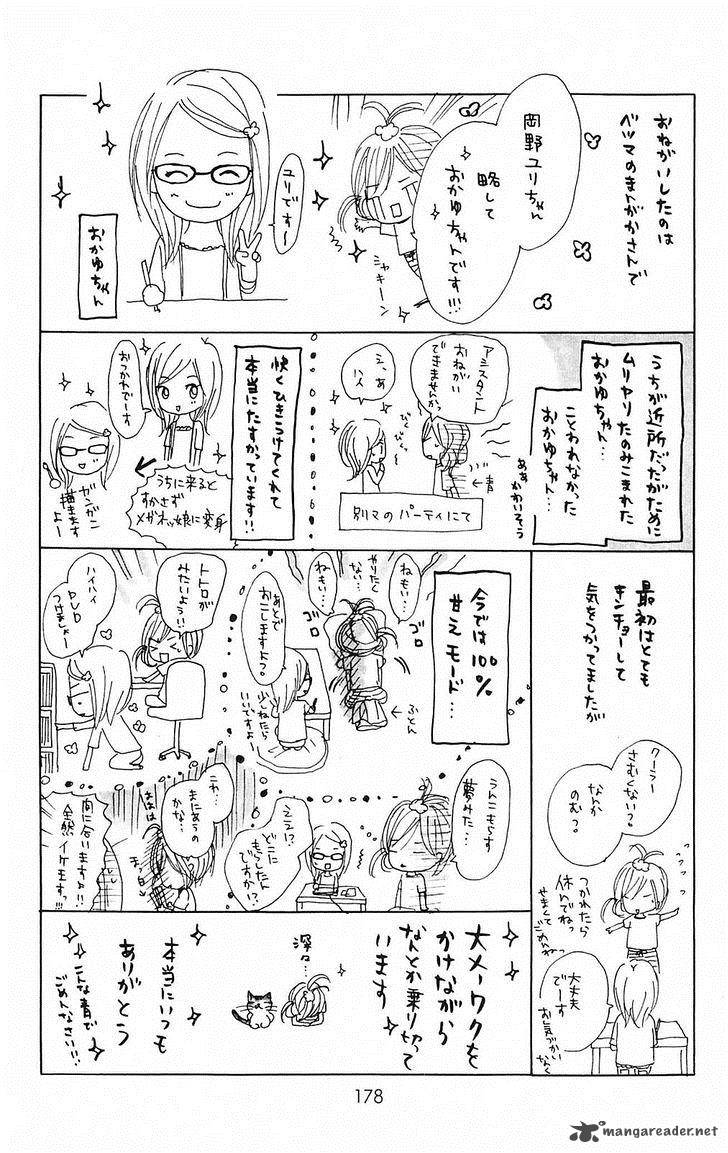 おねがいしたのは
ベツマのまんがかさんで
岡野ユリちゃん
略して
おかゆちゃんです!!!
シャキーン
ユリです〜
おかゆちゃん
うちが近所だったがために
ムリヤリたのみこまれた
おかゆちゃん…
ことわれなかった
おかゆちゃん…
ああ かわいそう
アシスタント
おねがい
できませんか?
え、あ
ハイ
びくびく…
←青
別マのパーティにて
快くひきうけてくれて
本当にたすかっています!!
おつかれでーす
うちに来ると
すかさず
メガネッ娘に変身
ガンガン
描きます
よー
最初はとても
キンチョーして
気をつかってましたが
クーラー
さむくない?
なんか
のむ?
つかれたら
休んでねっ
せまくてごめんねっ
大丈夫
でーす
お気づかいなく
今では100%
甘えモード…
ねもい…
やりたく
ない…
ねもい…
ゴロ
ゴロ
←ふとん
あとで
おこしますよっ
少しねたら
いいですよ
トトロが
みたいよう!!
ハイハイ
DVD
つけましょー
うんこもらす
夢みた…
ええ!?
どこに
もらしたん
ですか!?
これ…
まにあうの
かな…
あああ
間に合いますよ!!!
全然イケますっ!!
大メーワクを
かけながら
なんとか乗り切って
います
深々…
本当にいつも
ありがとう
こんな青で
ごめんなさい!!
178
mangareader.net